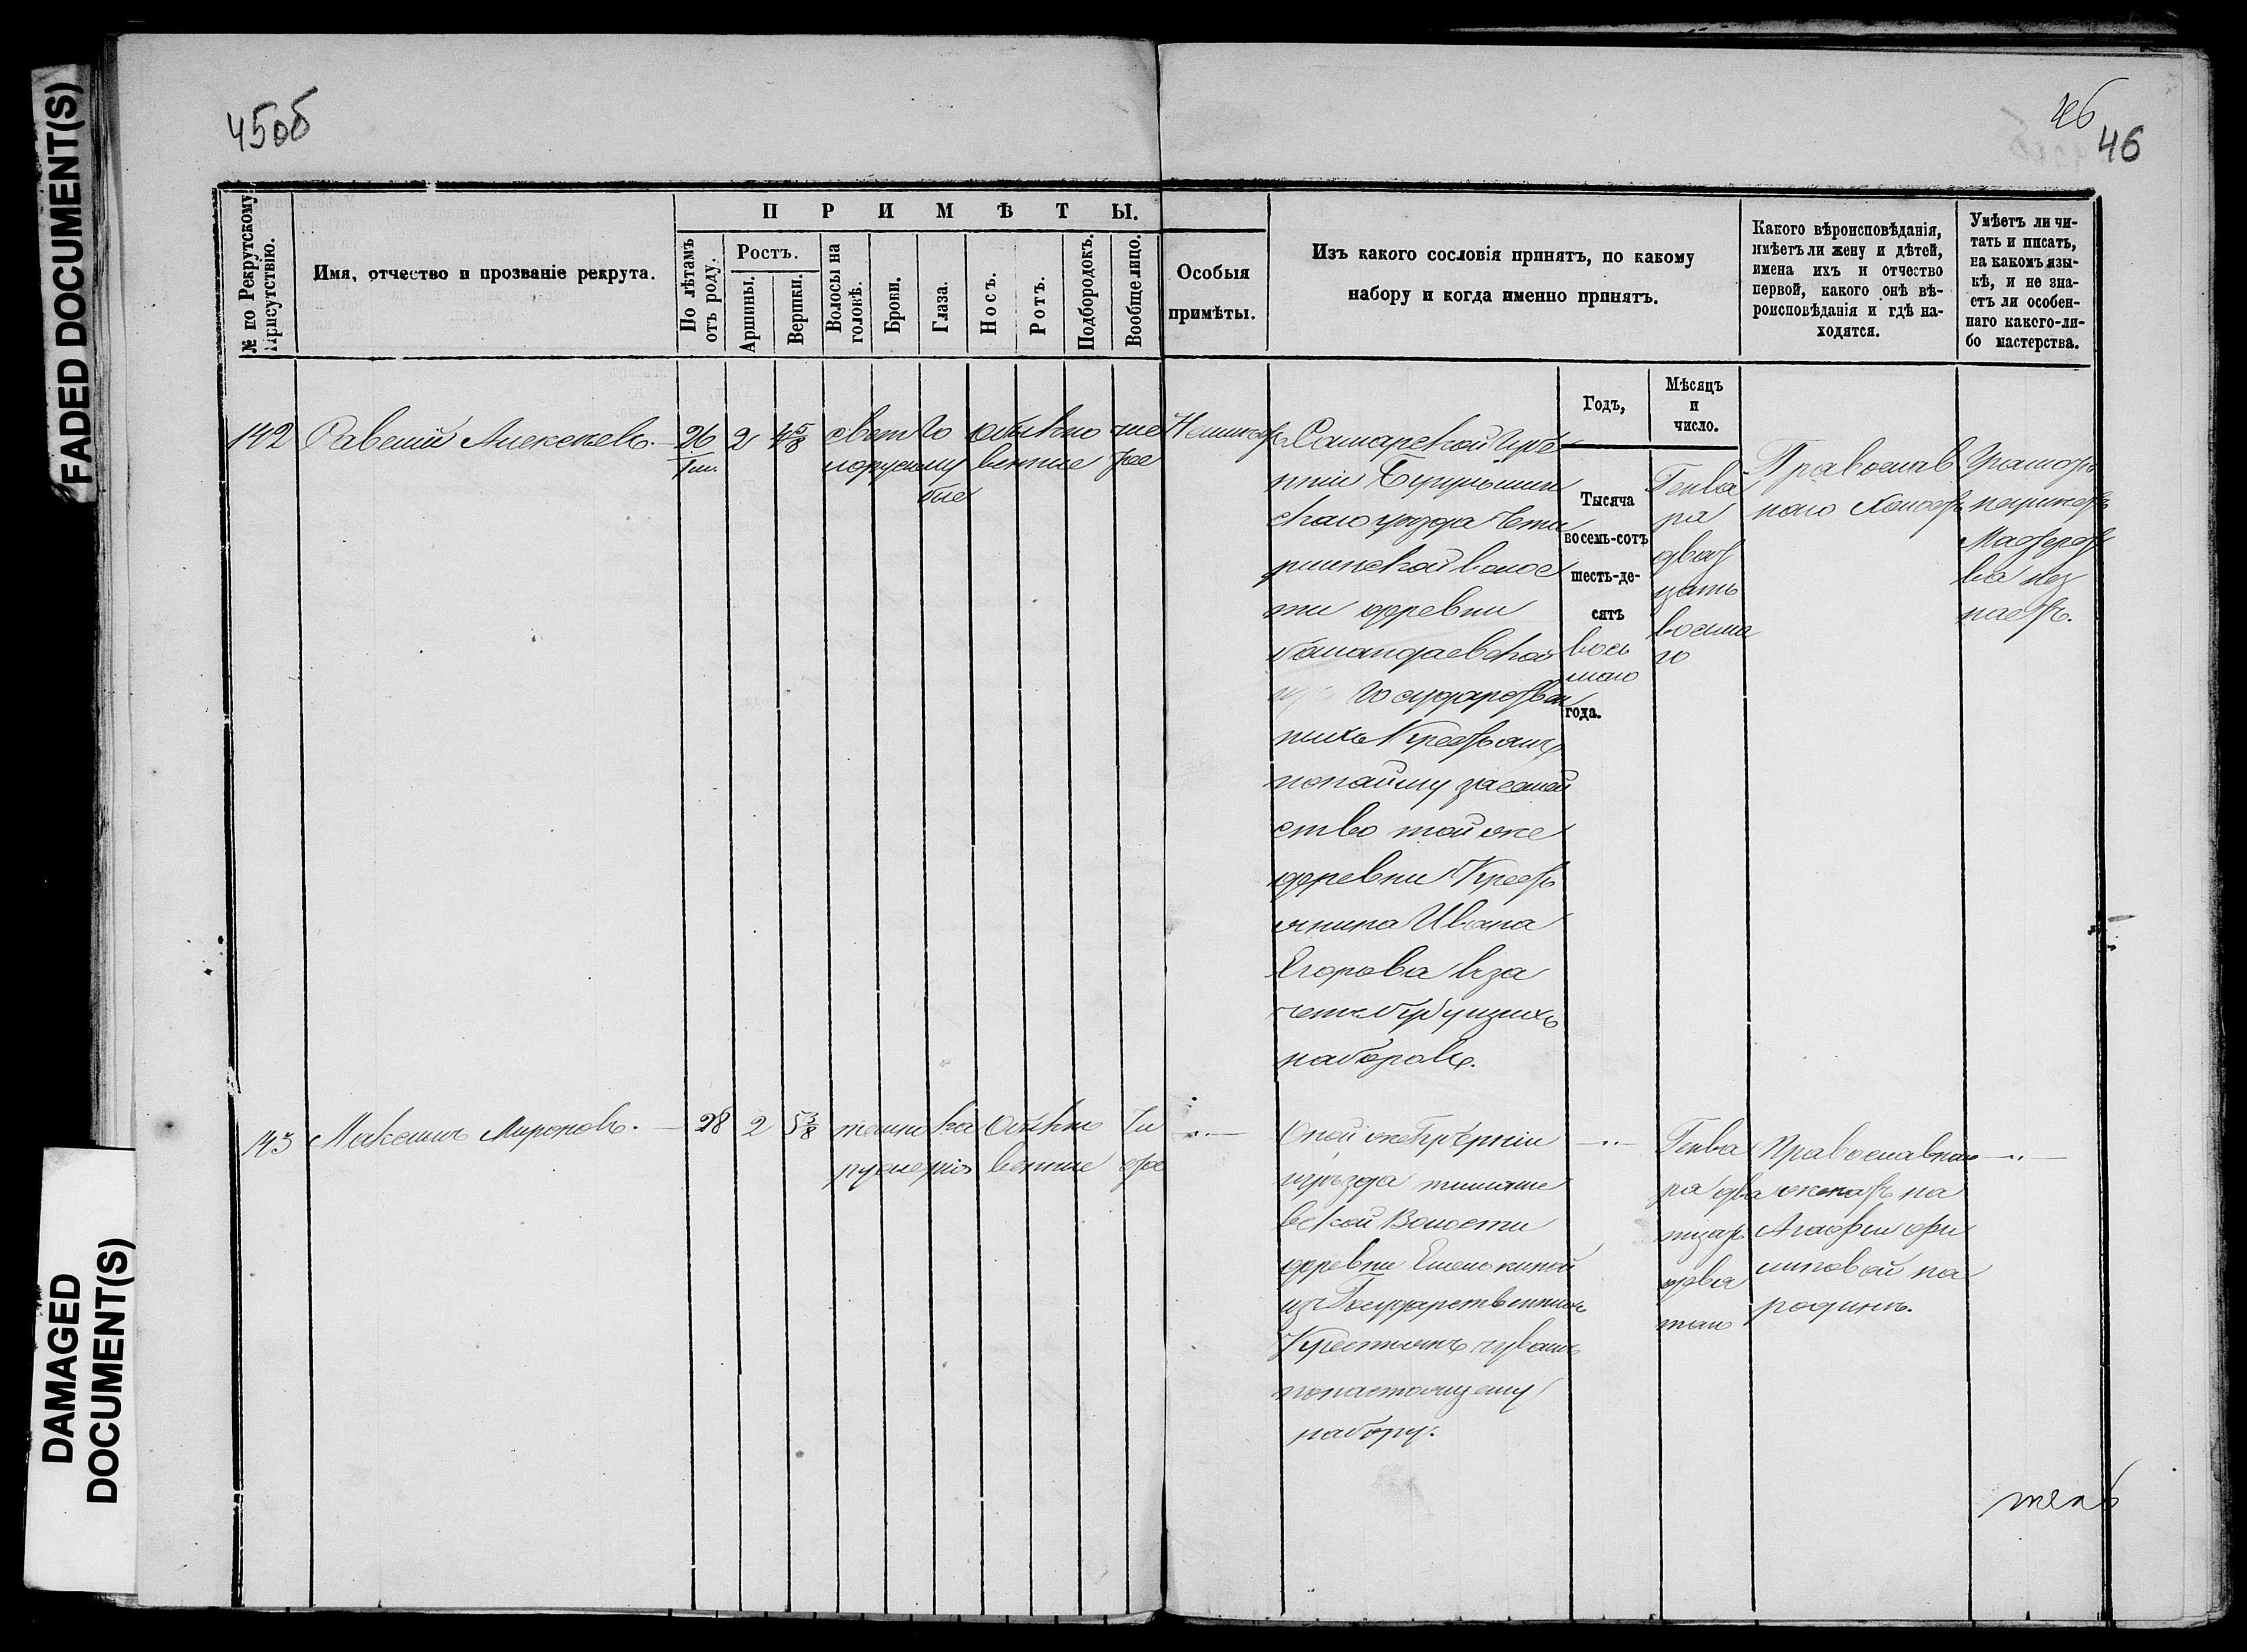 FADED DOCUMENT(S)
DAMAGED
DOCUMENT(S)
45об
46
46
№ по Рекрутскому
Присутствію.
Имя, отчество и прозваніе рекрута.
ПРИМѢТЫ.
По лѣтамъ
отъ роду.
Ростъ.
Аршины.
Вершки.
Волосы на
головѣ.
Брови.
Глаза.
Носъ.
Ротъ.
Подбородокъ.
Вообще лицо.
Особыя
примѣты.
Изъ какого сословія принятъ, по какому
набору и когда именно принятъ.
Какого вѣроисповѣданія,
имѣетъ ли жену и дѣтей,
имена ихъ и отчество
первой, какого онѣ вѣ-
роисповѣданія и гдѣ на-
ходятся.
Умѣетъ ли чи-
тать и писать,
на какомъ язы-
кѣ, и не зна-
етъ ли особен-
наго какого-ли-
бо мастерства.
Годъ,
Мѣсяцъ
и
число.
142
Савелій Алексеевъ.
26
2
4 5/8
светло
русыи
Го
лу
бые
обыкно
венные
чис
тое
Самарской Губе
рніи Бугульмин
скаго уѣзда
волос
ти деревни
Государствен
ныхъ Крестьянъ
по найму за семей
ство той же
деревни Крестъ
янина Ивана
Егорова въ за
четъ будущихъ
наборовъ.
Тысяча
восемь-сотъ
шесть-де-
сятъ
вось
маго
года.
Генва
ря
двад
цать
восьма
го
Православ
наго холостъ
Грамотѣ
неумѣетъ
Мастерст
ва нез
наетъ.
143
Максимъ Мироновъ.
28
2
5 3/8
темно
русые
ка
ріе
Обыкно
венные
Чи
стое
Оной же Губерніи
и уѣзда
вской Волости
деревни Емелькиной
изъ Государственныхъ
Крестьянъ чувашъ
по настоящему
набору.
Генва
ря два
тцать
девя
таго
Православнаго
женатъ на
Агафьи Фи
липовой на
родинѣ.